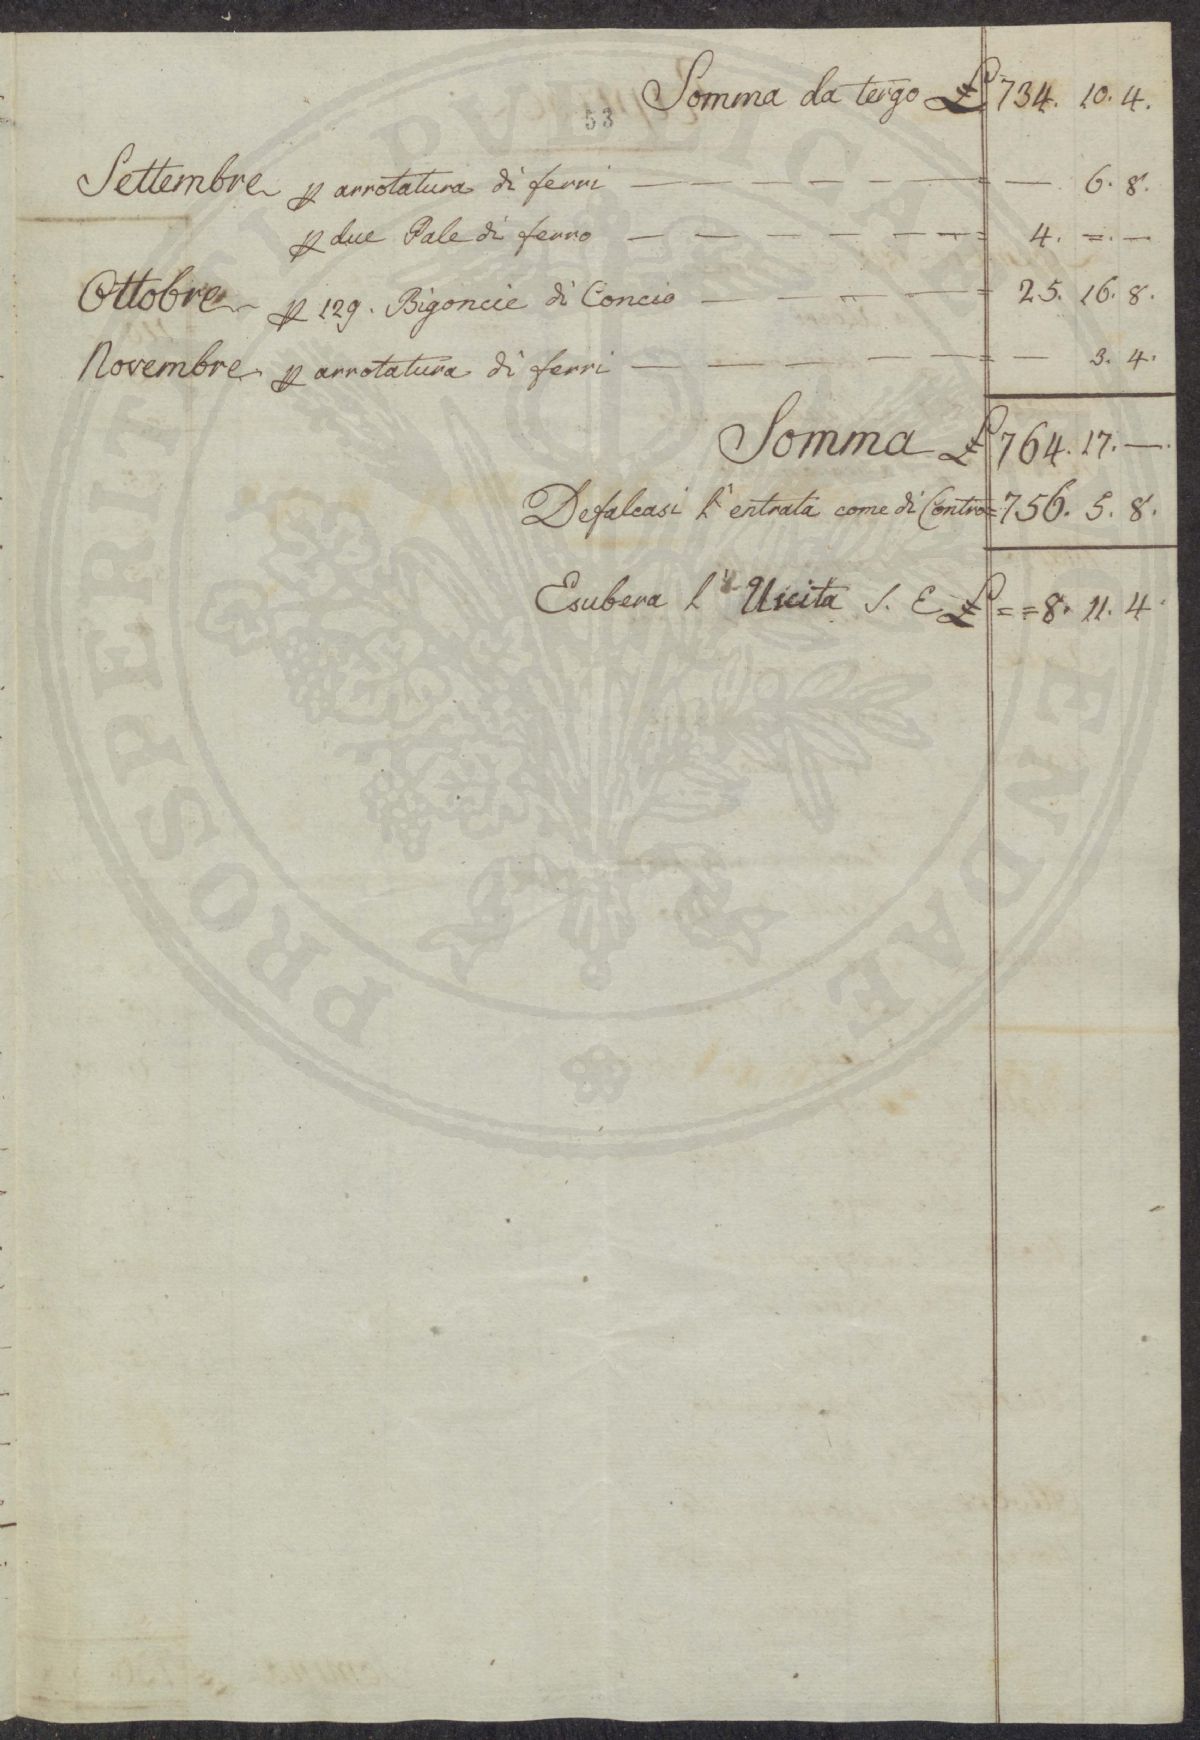 Somma da tergo £ 734. 10. 4.
53
Settembre p arrotatura di ferri — — — — — — — — 6. 8.
p due Pale di ferro — — — — — — = 4. =. —
Ottobre p 129. Bigoncie di Concio — — — — — = 25. 16. 8.
Novembre p arrotatura di ferri — — — — — — = — 3. 4.
Somma £ 764. 17. —.
Defalcasi l'entrata come di Contro = 756. 5. 8.
Esubera l'Uscita S. E. £ = = 8. 11. 4.
PROSPERITATI PVBLICAE AVGENDAE